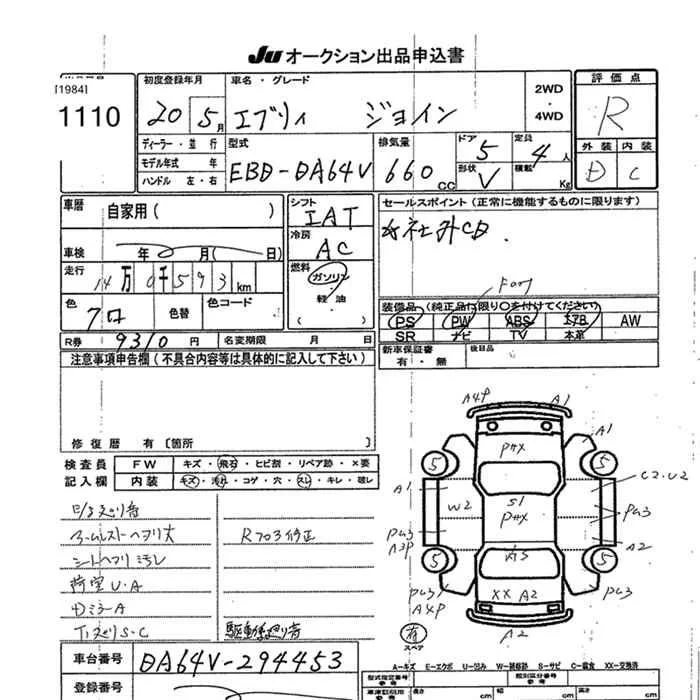 JU オークション出品申込書
[1984]
1110
初度登録年月
20 5月
車名・グレード
エブリィ ジョイン
2WD
・
4WD
評価点
R
外装 内装
D C
ディーラー・並行
モデル年式 年
ハンドル 左・右
型式
EBD-DA64V
排気量
660cc
ドア
5
形状
V
定員
4人
積載
Kg
車歴
自家用( )
シフト
IAT
セールスポイント(正常に機能するものに限ります)
冷房
AC
車検
年 月( 日)
走行
14万0千593km
燃料
ガソリン
・
軽油
色
色替
色コード
装備品(純正品に限り○を付けてください)
PS PW ABS エアB AW
SR ナビ TV 本革
R券 9310円
名変期限 月 日
新車保証書
有・無
後日品
注意事項申告欄(不具合内容等は具体的に記入して下さい)
修復歴 有〔箇所 〕
検査員
記入欄
FW キズ・飛石・ヒビ割・リペア跡・×要
内装 キズ・汚れ・コゲ・穴・スレ・キレ・破レ
シートヘフリ汚レ
荷室U・A
R703修正
Dミラ-A
車台番号 DA64V-294453
登録番号
A4P A1
A1
PЖX
5 5
A1 W2 S1 C2.U2
PЖX
A2
5 5
A4P
XX A2
A2
有
スペア
A-キズ E-エクボ U-凹み W-補修跡 S-サビ C-腐食 XX-交換済
型式指定番号
類別区分番号
長さ cm 幅 cm 高さ cm